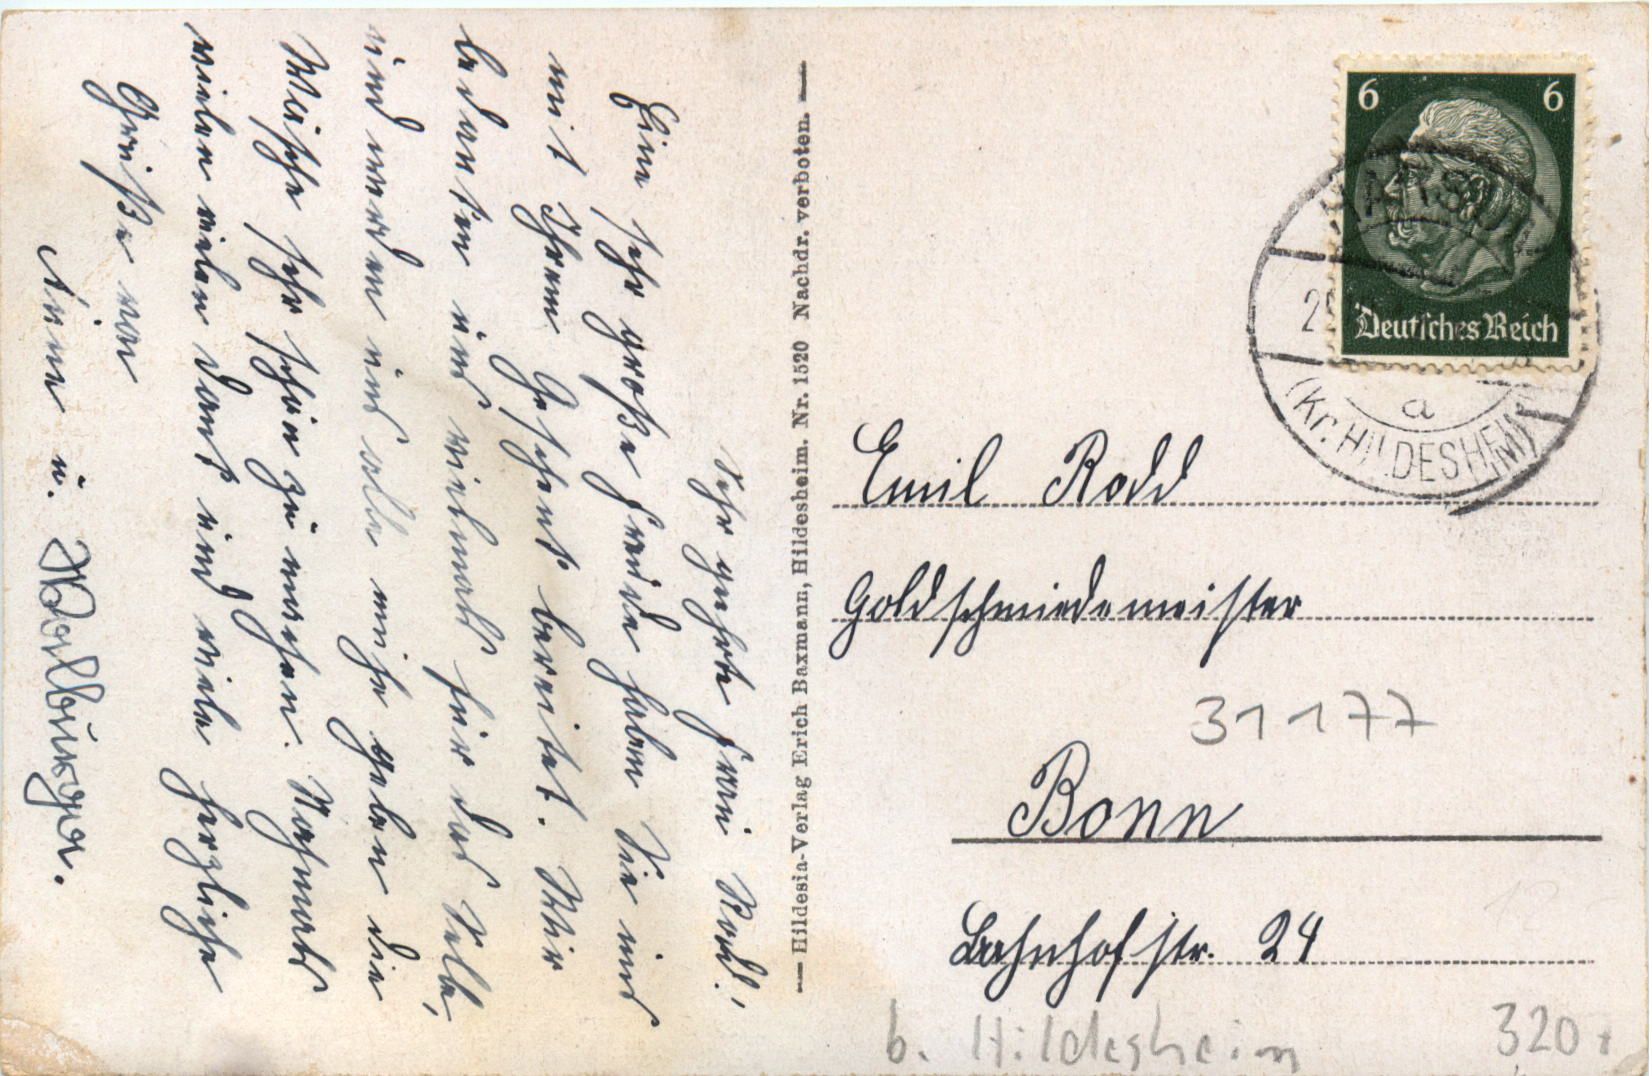 Sehr geehrte Frau Rodd!
Eine sehr große Freude haben Sie uns
mit Ihrem Geschenk bereitet. Wir
bedanken uns vielmals für das
und werden uns alle Mühe geben die
sehr schön zu machen. Nochmals
vielen vielen Dank und viele herzliche
Grüße von
Änne u. Walburga.
Hildesia-Verlag Erich Baxmann, Hildesheim. Nr. 1520 Nachdr. verboten.
6 6
Deutsches Reich
a
(Kr. HILDESHEIM)
Emil Rodd
Goldschmiedemeister
31177
Bonn
Bahnhofstr. 24
b. Hildesheim
320